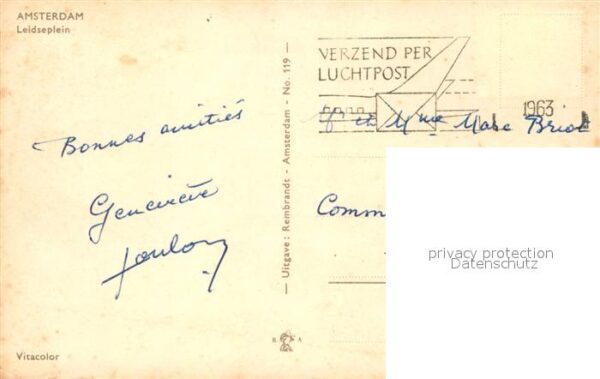 AMSTERDAM
Leidseplein
Bonnes amitiés
Geneviève
Vitacolor
— Uitgave: Rembrandt - Amsterdam - No. 119 —
R A
VERZEND PER
LUCHTPOST
1963
et Mme
Comm
privacy protection
Datenschutz